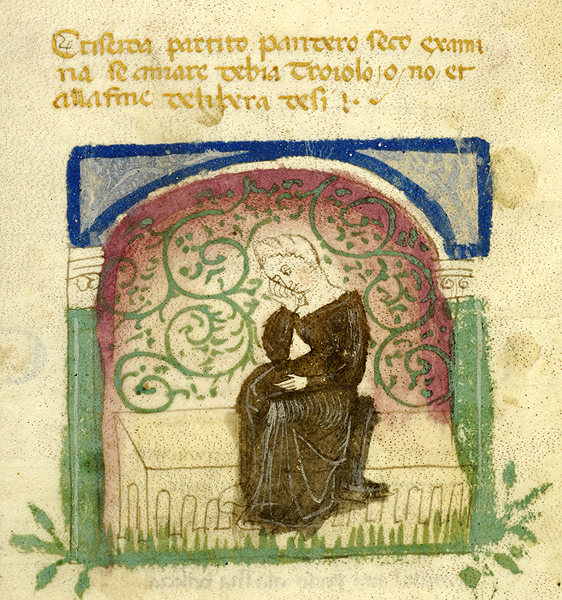 Criseida partito pandero seco exami
na se amare debia Troiolo o no et
alla fine delibera desi